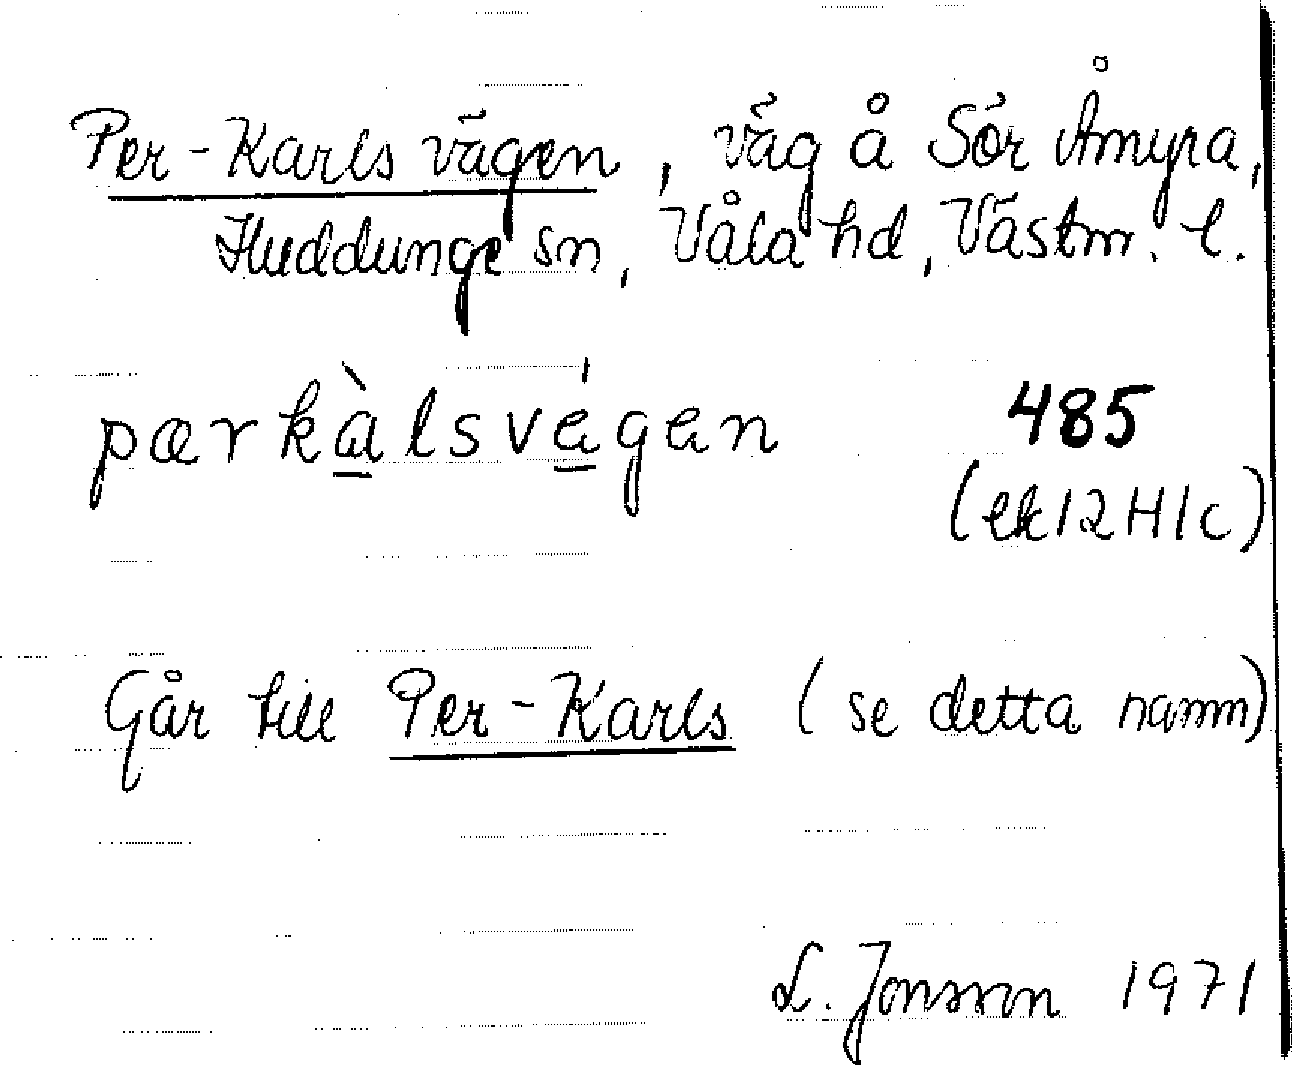 Per-Karls vägen, väg å Sör Åmyra,
Huddunge sn, Våla hd, Västm. l.
pærkàlsvégen 485
(ek 12 H 1c)
Går till Per-Karls (se detta namn)
L. Jonsson 1971